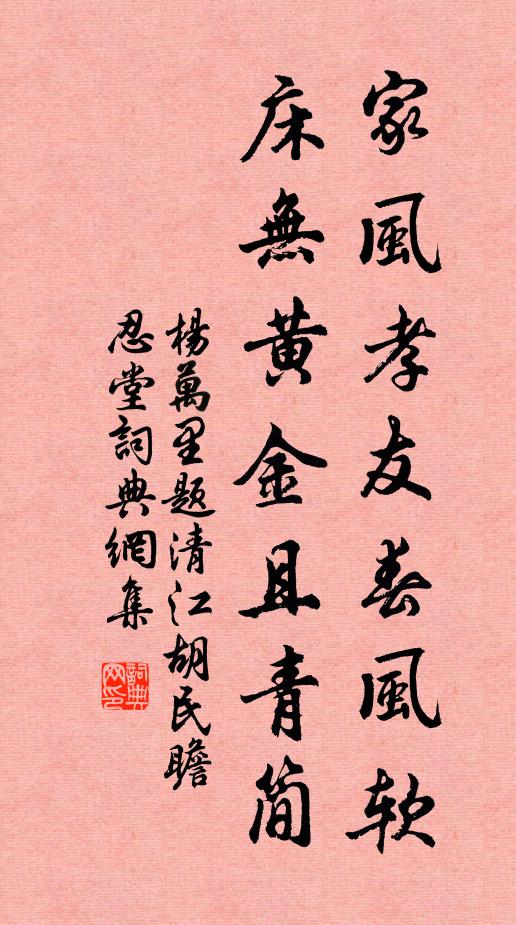 家風孝友春風軟
床無黄金且青简
楊萬里题清江胡民瞻
忍堂詞典網集
詞典网印